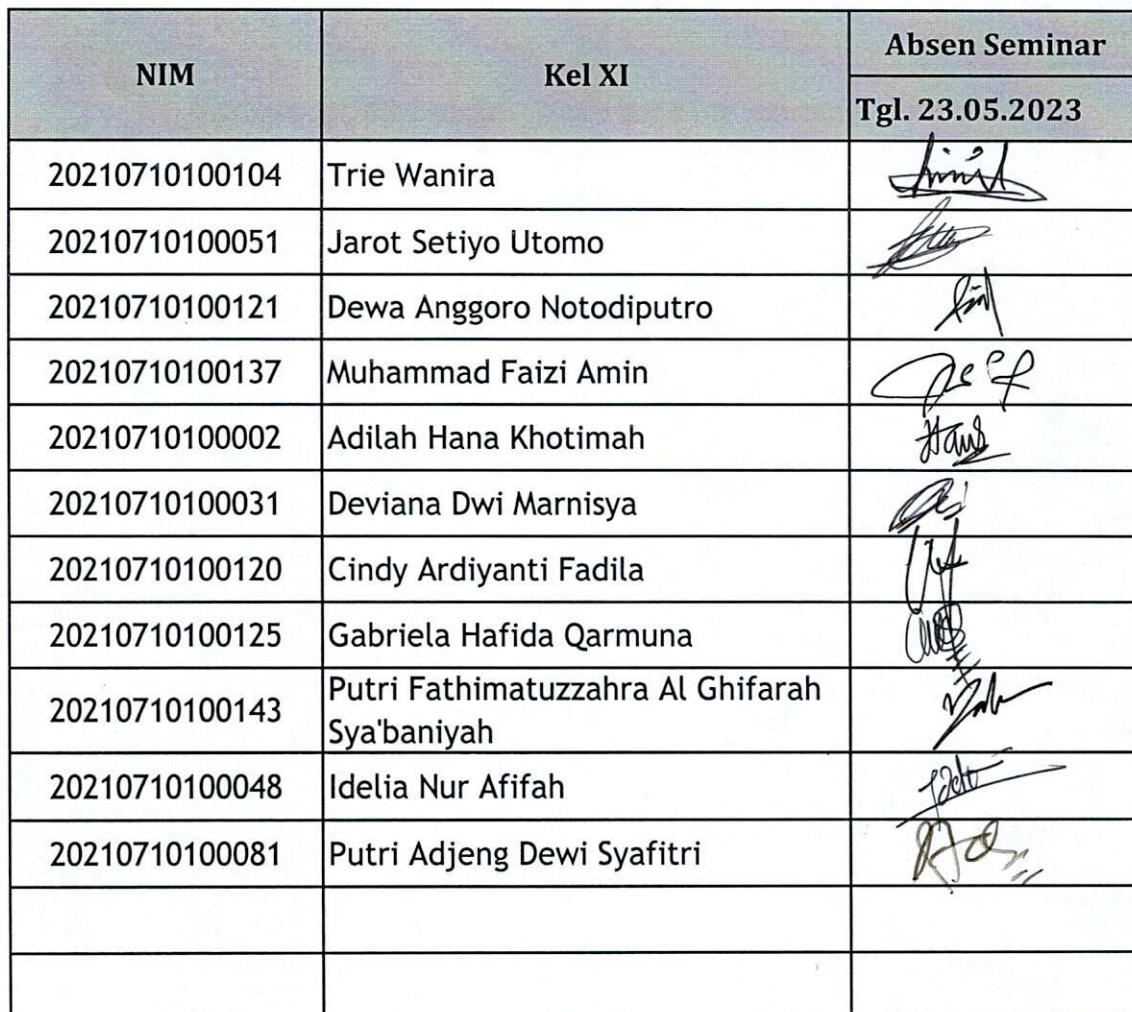 NIM Kel XI Absen Seminar
Tgl. 23.05.2023
20210710100104 Trie Wanira
20210710100051 Jarot Setiyo Utomo
20210710100121 Dewa Anggoro Notodiputro
20210710100137 Muhammad Faizi Amin
20210710100002 Adilah Hana Khotimah
20210710100031 Deviana Dwi Marnisya
20210710100120 Cindy Ardiyanti Fadila
20210710100125 Gabriela Hafida Qarmuna
20210710100143 Putri Fathimatuzzahra Al Ghifarah
Sya'baniyah
20210710100048 Idelia Nur Afifah
20210710100081 Putri Adjeng Dewi Syafitri